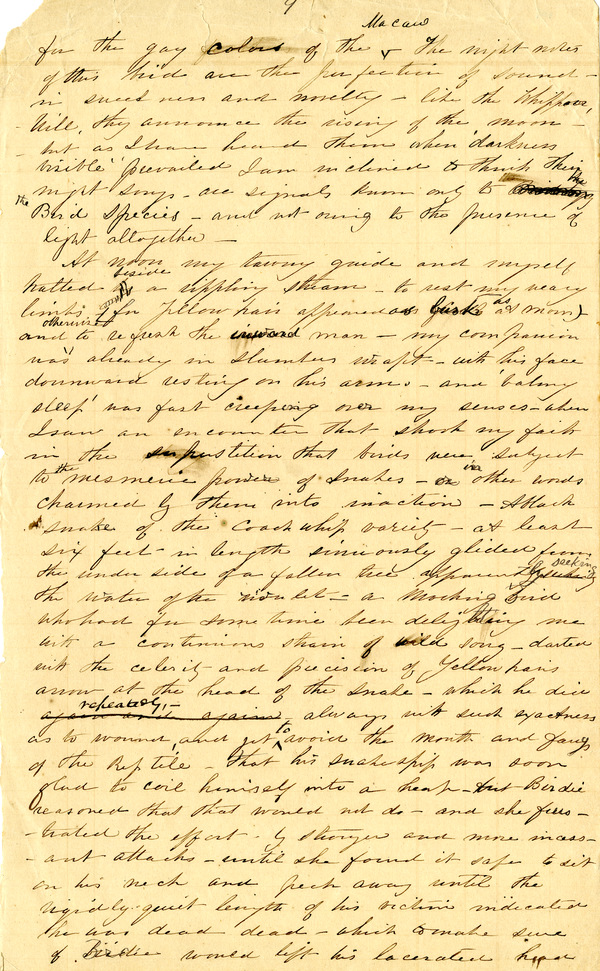 9
Macaw
for the gay colors of the The night notes
of this bird are the perfection of sound -
in sweetness and novelty - like the Whippoor,
will, they announce the rising of the moon -
- but as I have heard them when 'darkness
visible' prevailed I am inclined to think their
night songs - are signals known only to the
the Bird species - and not owing to the presence of
light altogether -
At noon my tawny guide and myself
halted beside a rippling stream - to rest my weary
limbs (for Yellow hair appeared as fresh as at morn)
otherwise
and to refresh the inward man - my companion
was already in slumbers wrapt - with his face
downward resting on his arms - and 'balmy
sleep' was fast creeping over my senses - when
I saw an encounter that shook my faith
in the superstition that birds were subject
to the mesmeric power of snakes - or in other words
charmed by them into inaction - A black
snake of the Coach whip variety - at least
six feet in length sinuously glided from
the under side of a fallen tree apparently seeking
the water of the rivulet - a Mocking bird
who had for some time been delighting me
with a continuous strain of wild song - darted
with the celerity and precision of Yellow hairs
arrow at the head of the snake - which he did
again and again repeatedly, - always with such exactness
as to wound, and yet to avoid the mouth and fangs
of the Reptile - that his snakeship was soon
glad to coil himself into a heap - but Birdie
reasoned that that would not do - and she frus-
-trated the effort by stronger and more incess-
-ant attacks - until she found it safe to sit
on his neck and peck away until the
rigidly quiet length of his victim indicated
he was dead dead - which to make sure
of Birdie would lift his lacerated head